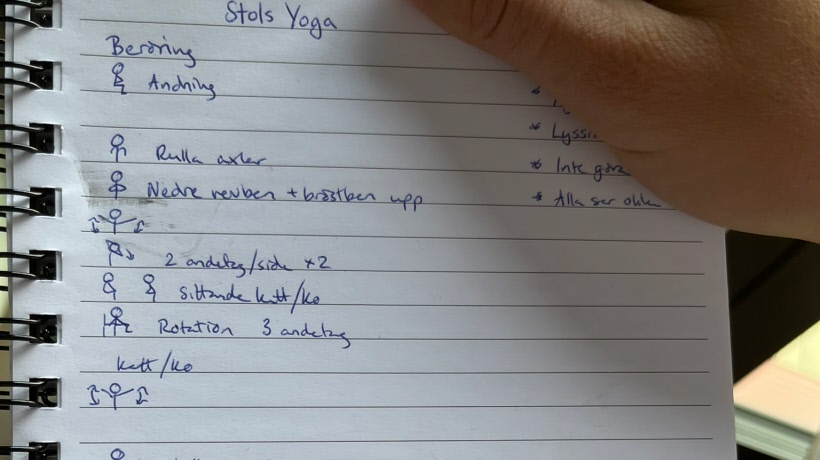 Stols Yoga
Beröring
Andning
Rulla axlar
Nedre revben + bröstben upp
2 andetag/sida x2
Sittande katt/ko
Rotation 3 andetag
katt/ko
* Lyssn
* Inte göra
* Alla ser olika